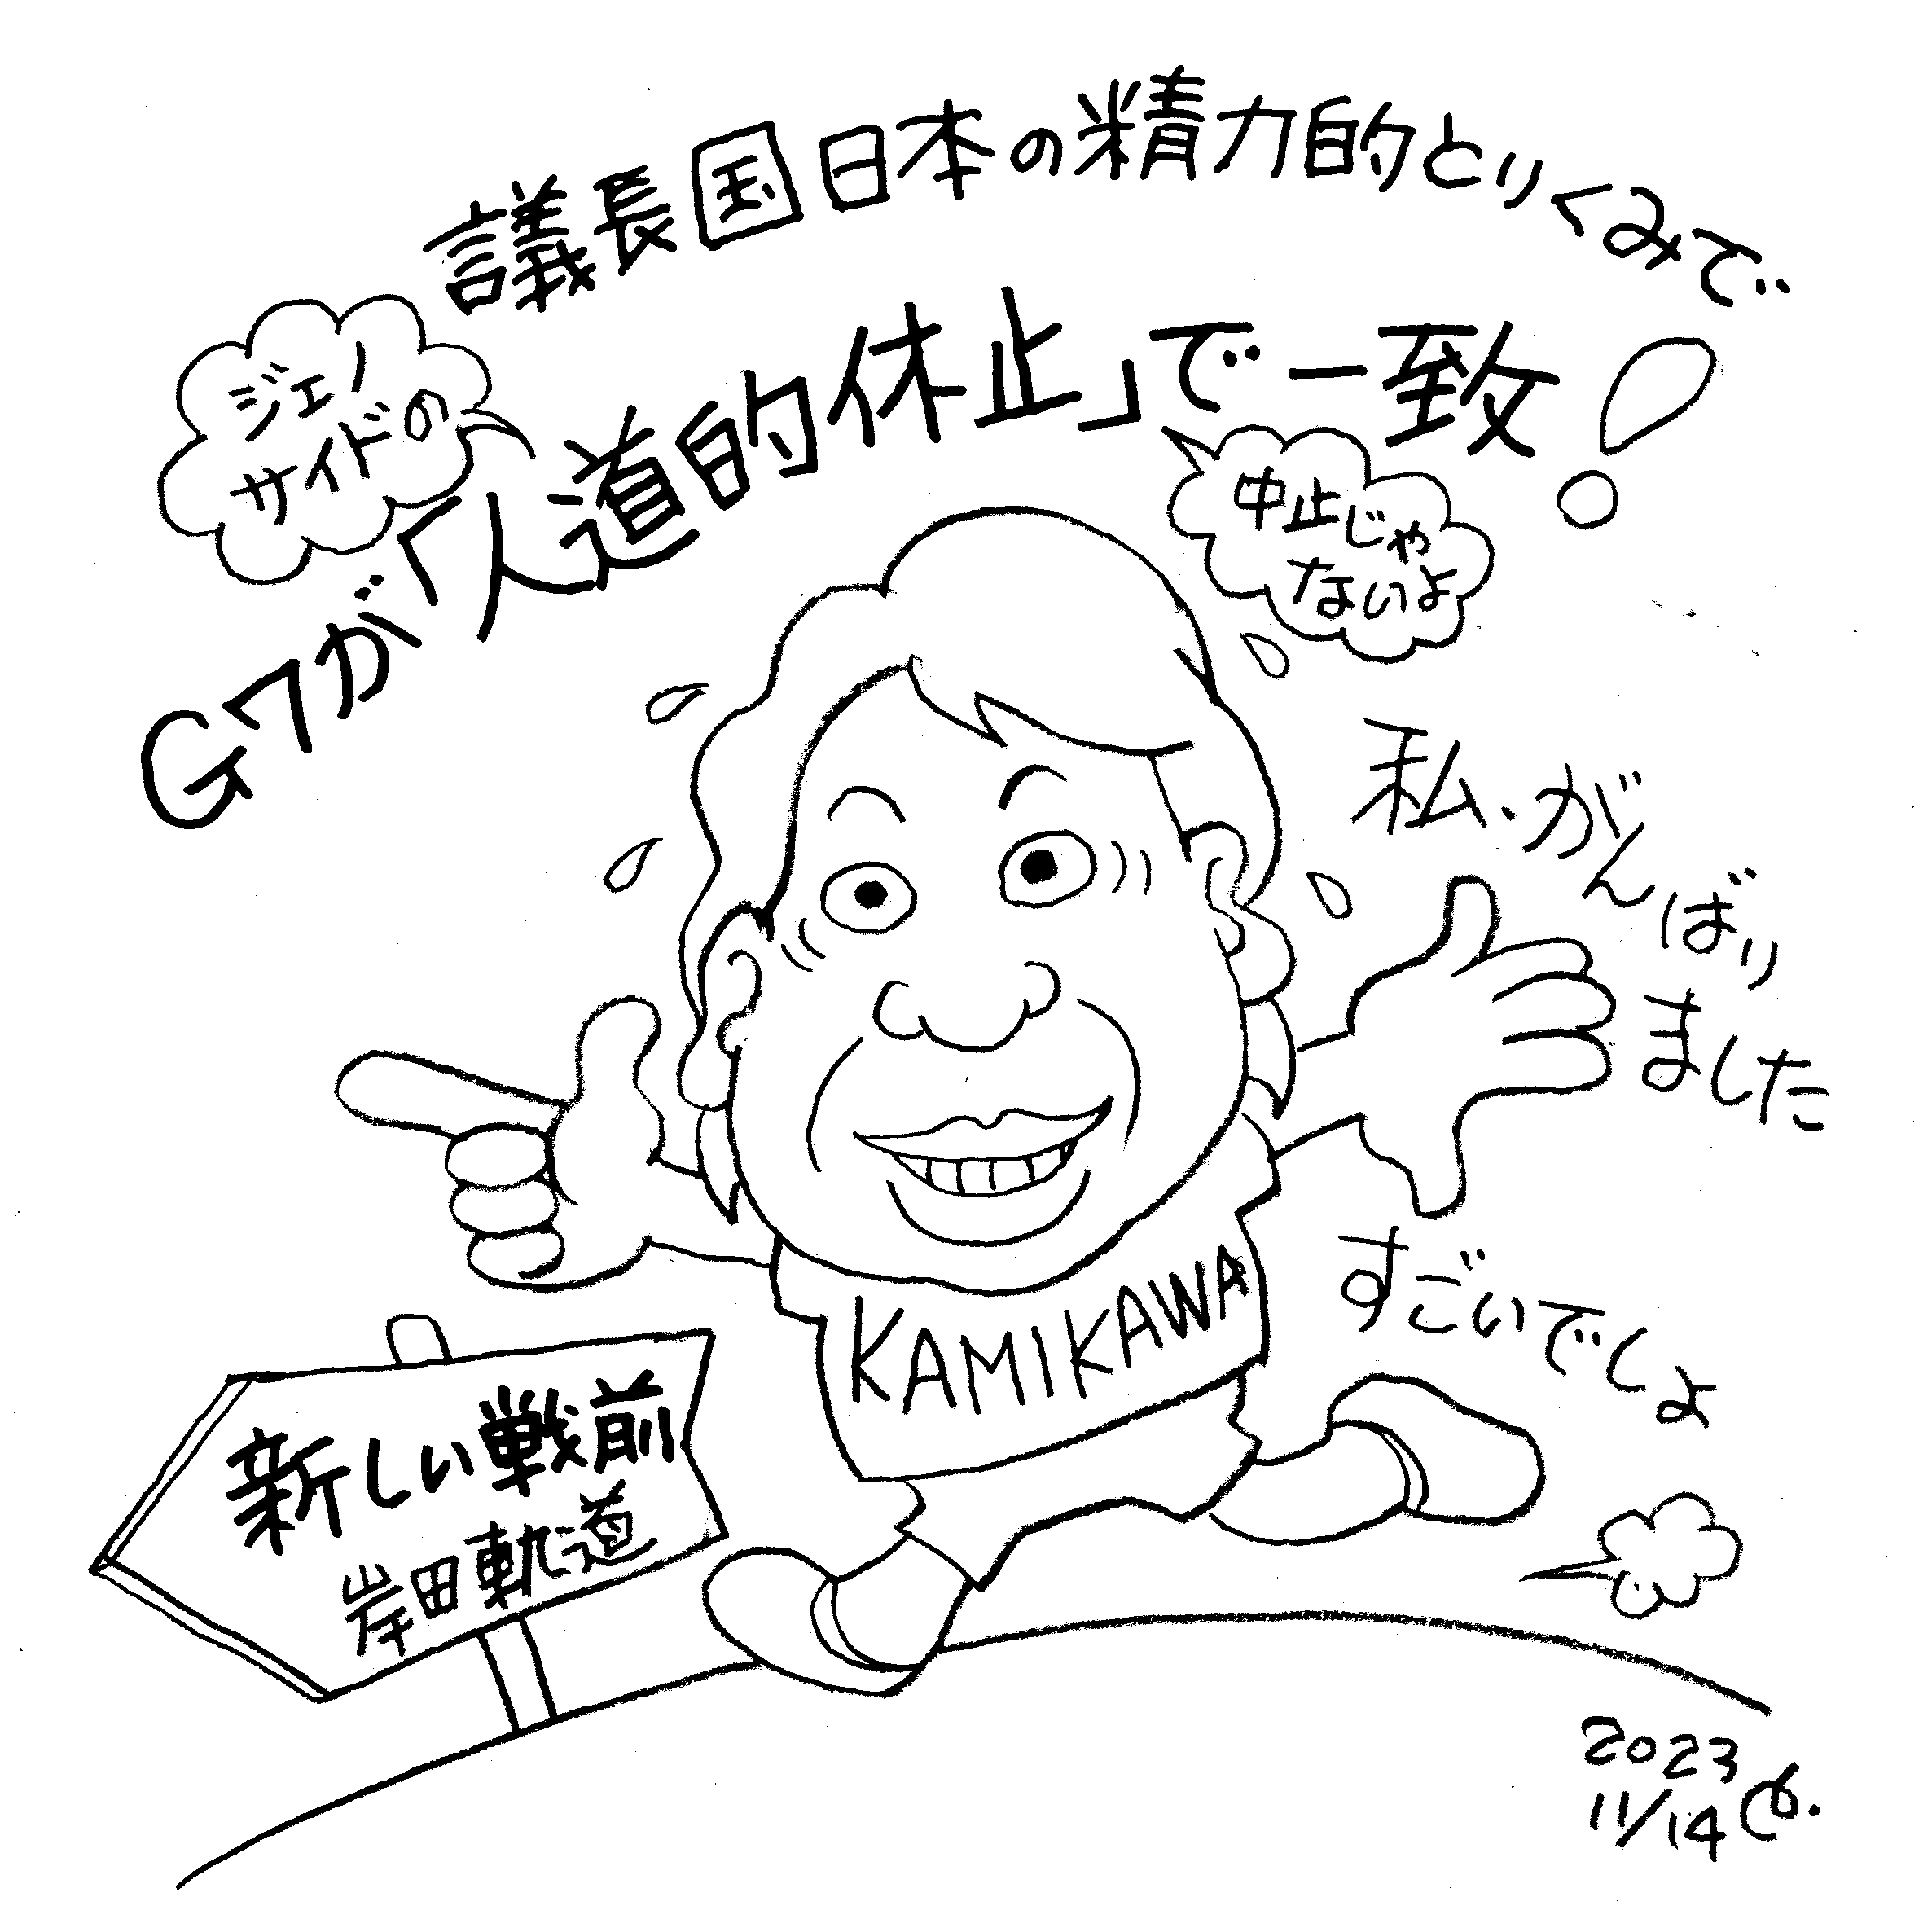 議長国日本の精力的とりくみで
G7が「人道的休止」で一致!
ジェノ
サイドの
中止じゃ
ないよ
私、がんばり
ました
すごいでしょ
KAMIKAWA
新しい戦前
岸田軌道
2023
11/14